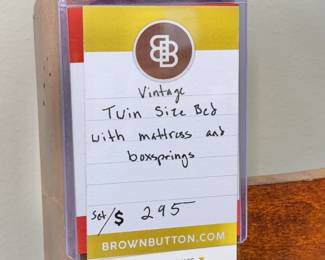 BB
Vintage
Twin Size Bed
with mattress and
boxsprings
Set/$ 295
BROWNBUTTON.COM